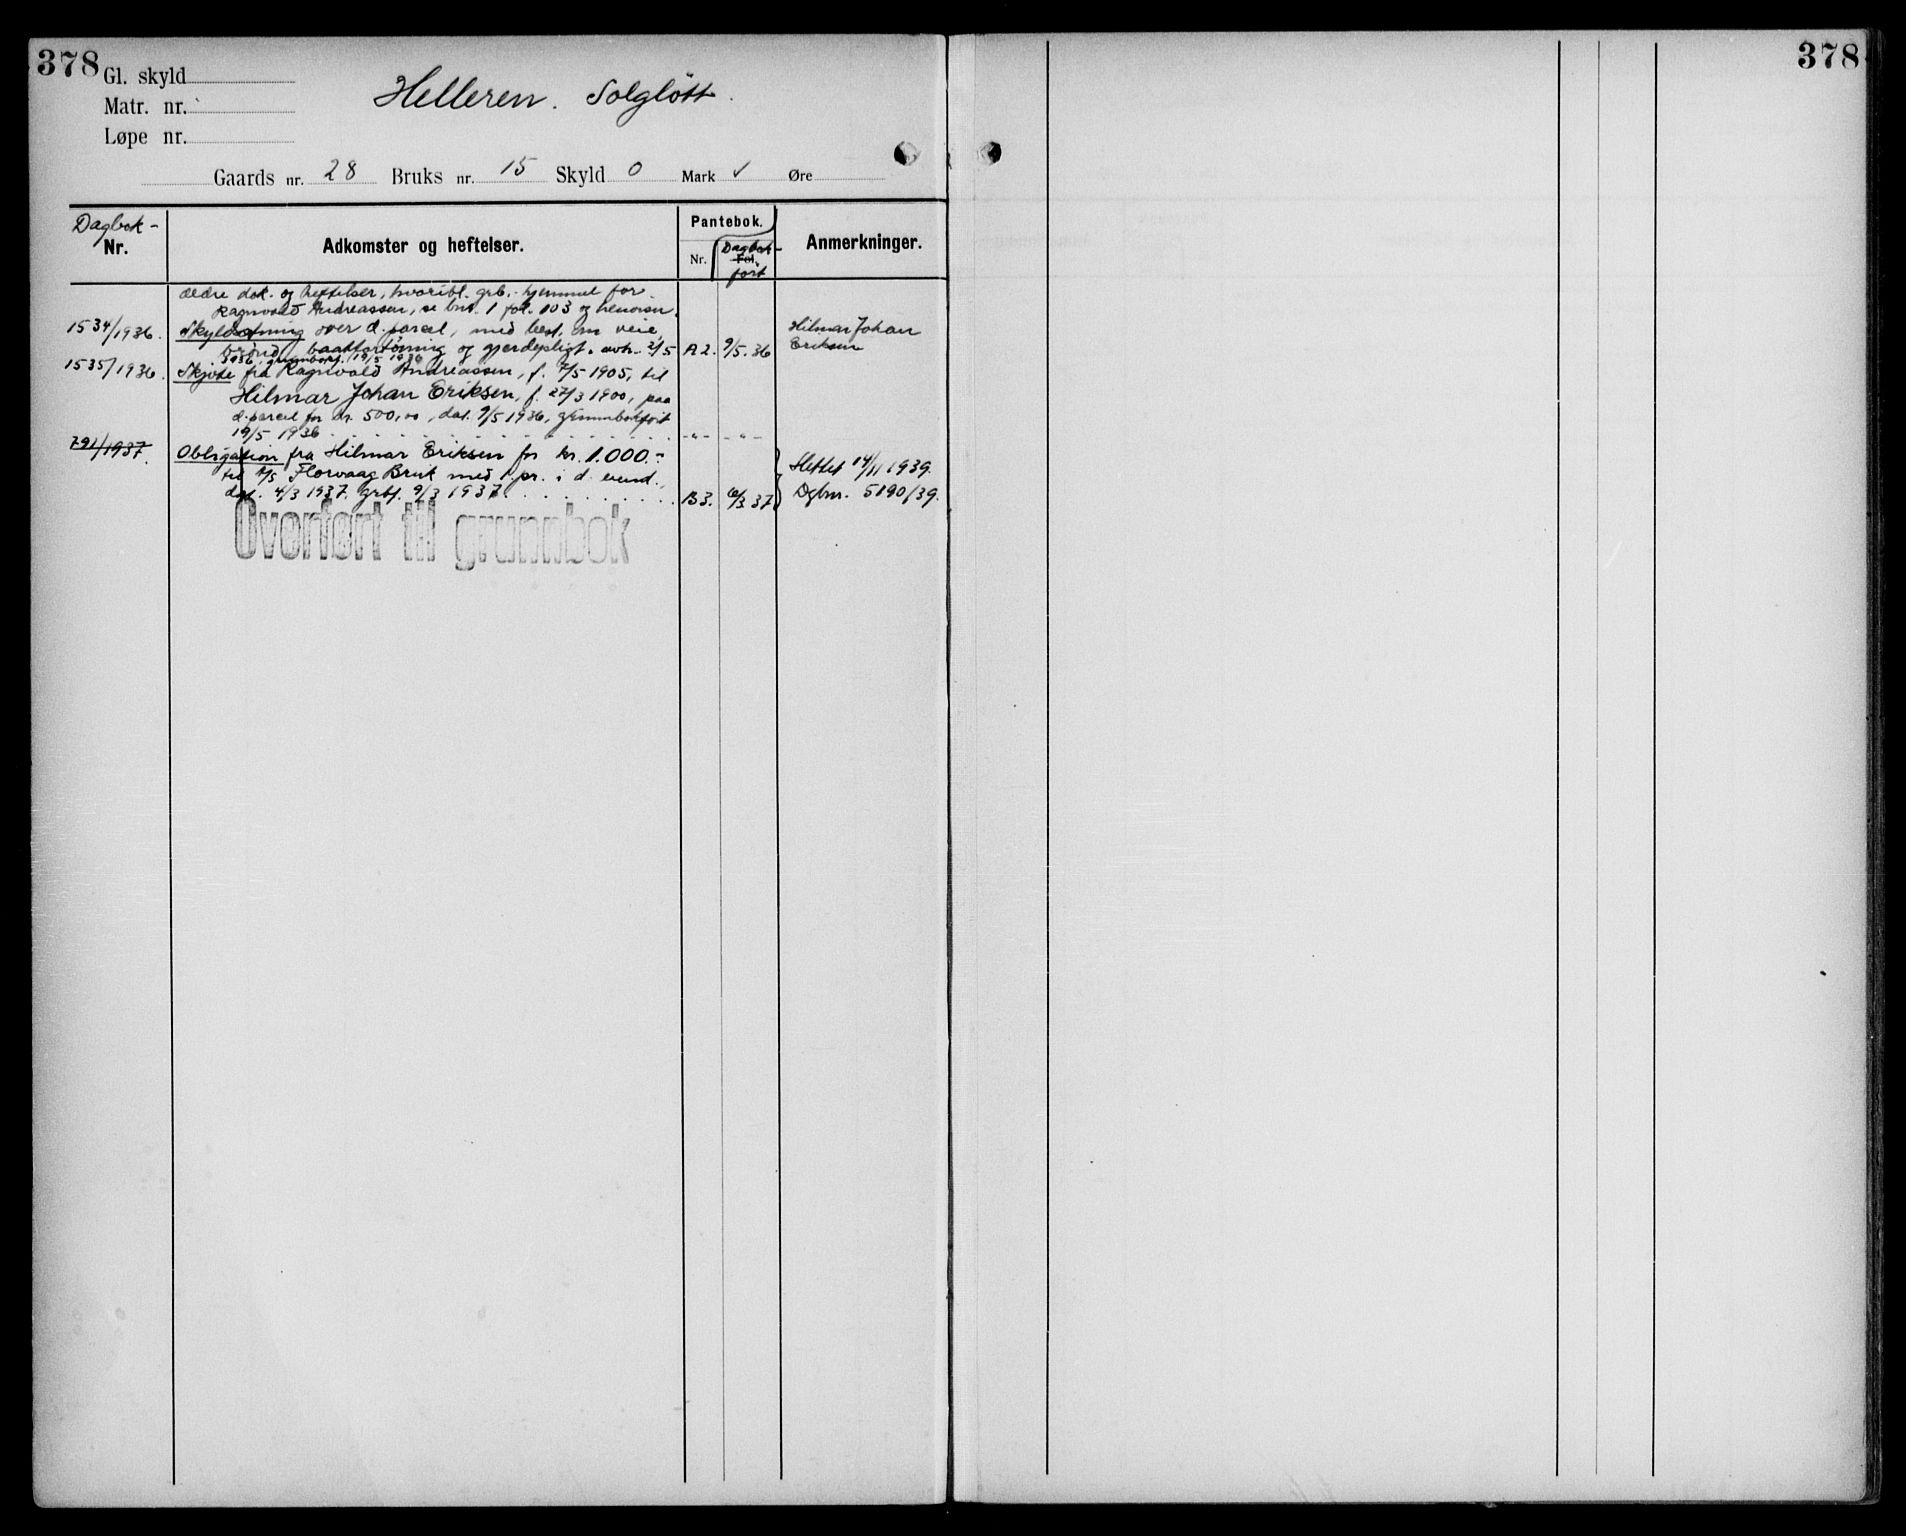 378
378
Gl. skyld
Matr. nr.
Løpe nr.
Helleren. Solgløtt.
Gaards nr. 28 Bruks nr. 15 Skyld 0 Mark Øre
Dagbok-
Nr.
Adkomster og heftelser.
Pantebok.
Nr.
Dagbok-
Fol.
ført
Anmerkninger.
ældre dok. og heftelser, hvoribl. grb.-hjemmel for
Ragnvald Andreassen, se bnr. 1 fol. 103 og henvisn.
1534/1936. Skylddeling over d. parcel, med best. om veie,
brønd, baatfortøining og gjerdepligt. avh. 2/5
1936, grunnbokf. 19/5 1936
A2. 9/5.36
Hilmar Johan
Eriksen
1535/1936. Skjøte fra Ragnvald Andreassen, f. 7/5 1905, til
Hilmar Johan Eriksen, f. 27/3 1900, paa
d. parcel for kr. 500,00, dat. 9/5 1936, grunnbokført
19/5 1936 -"- -"-
791/1937. Obligation fra Hilmar Eriksen for kr. 1.000.-
til A/S Florvaag Bruk med 1. pr. i d. eiend.,
dat. 4/3 1937. grbf. 9/3 1937. B3. 6/3 37
Slettet 14/11 1939.
Dgbnr. 5190/39.
Overført til grunnbok